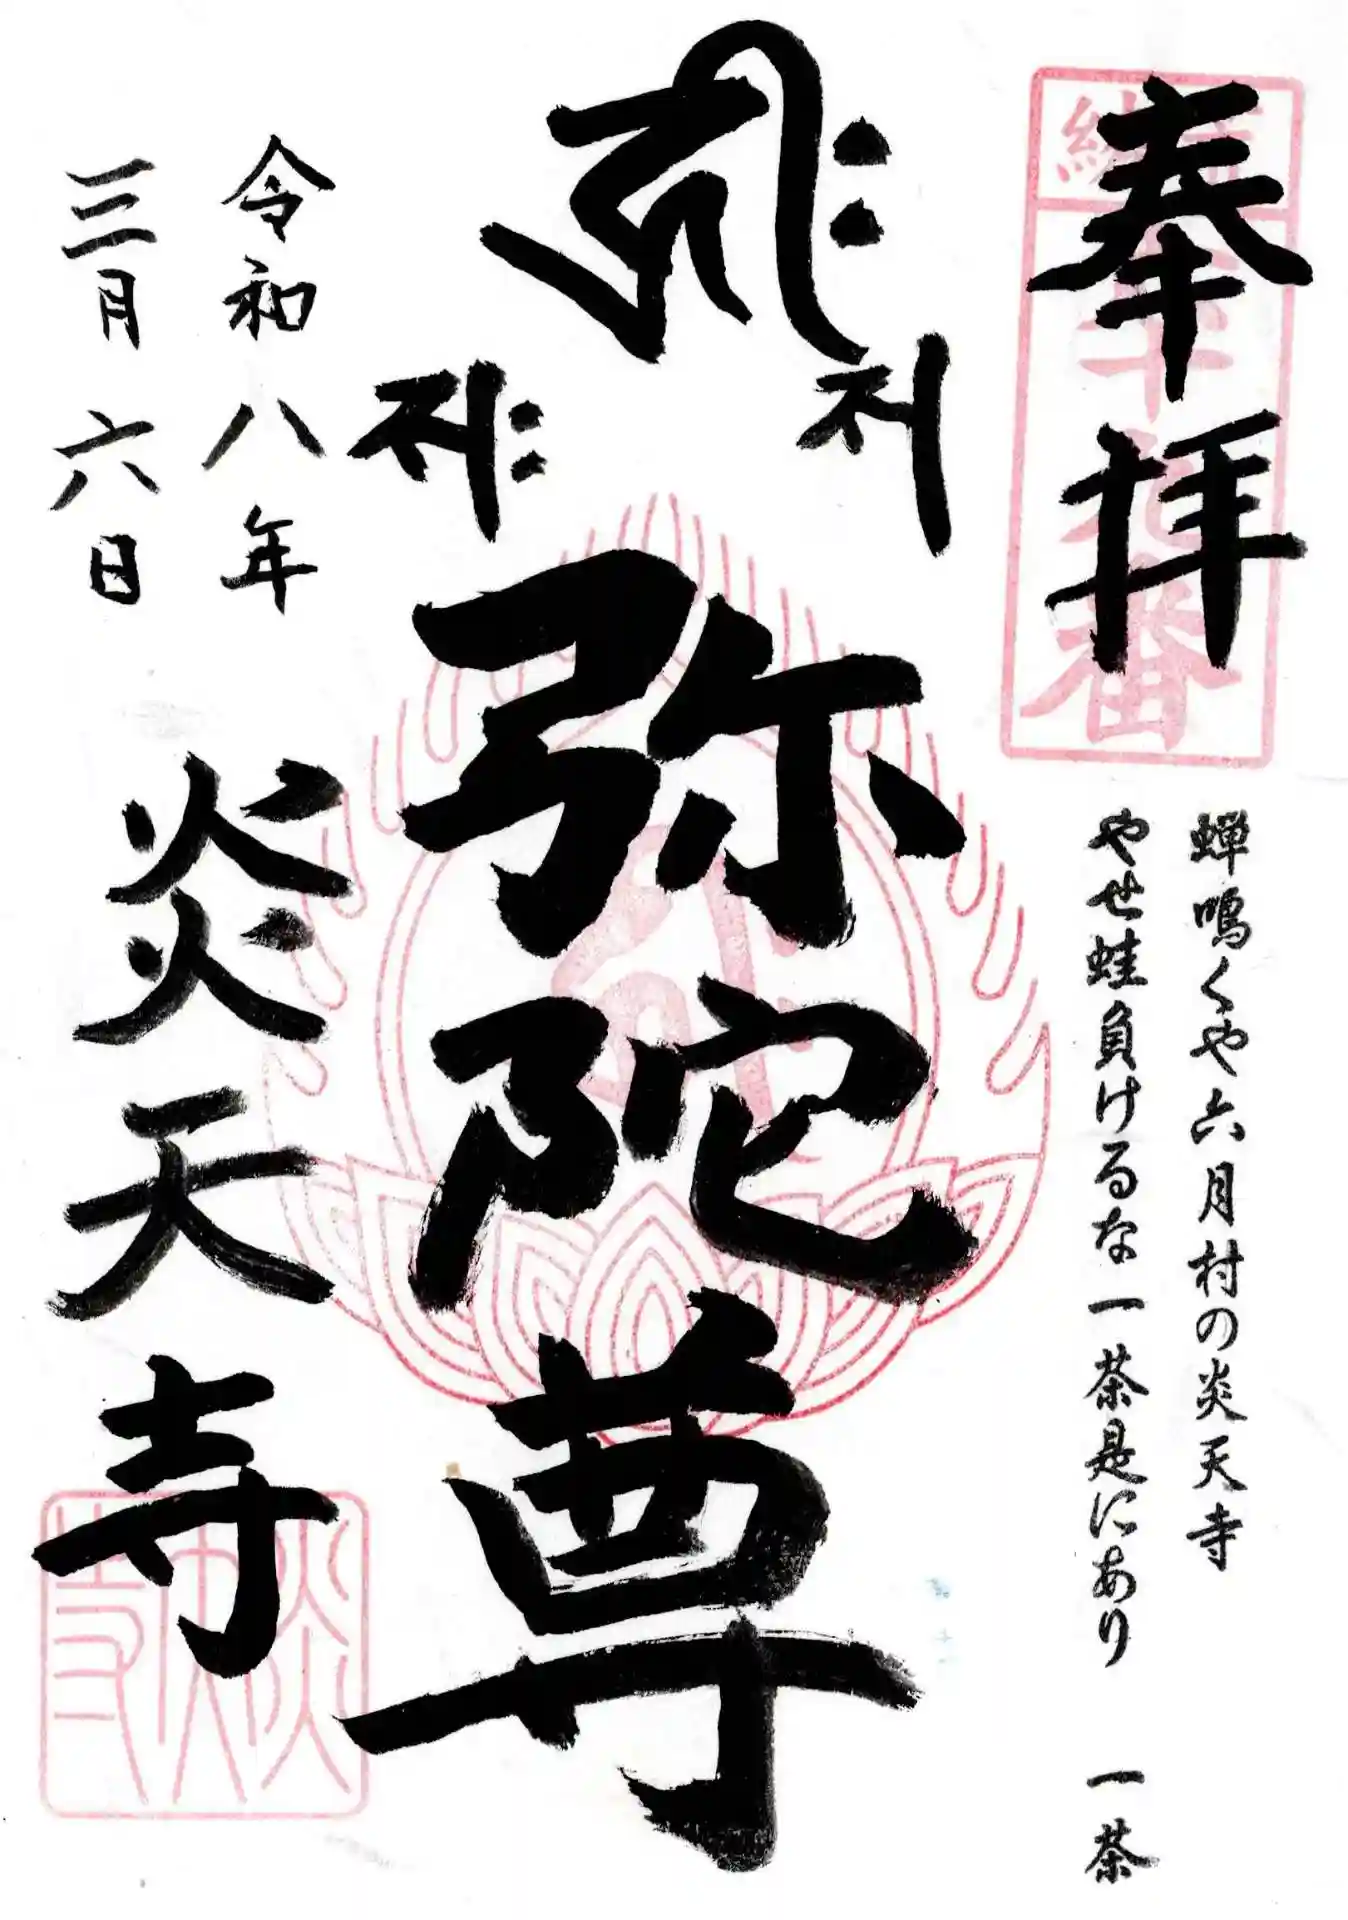 奉拝
蝉鳴くや六月村の炎天寺
やせ蛙負けるな一茶是にあり 一茶
弥陀尊
令和八年
三月六日
炎天寺
炎天寺